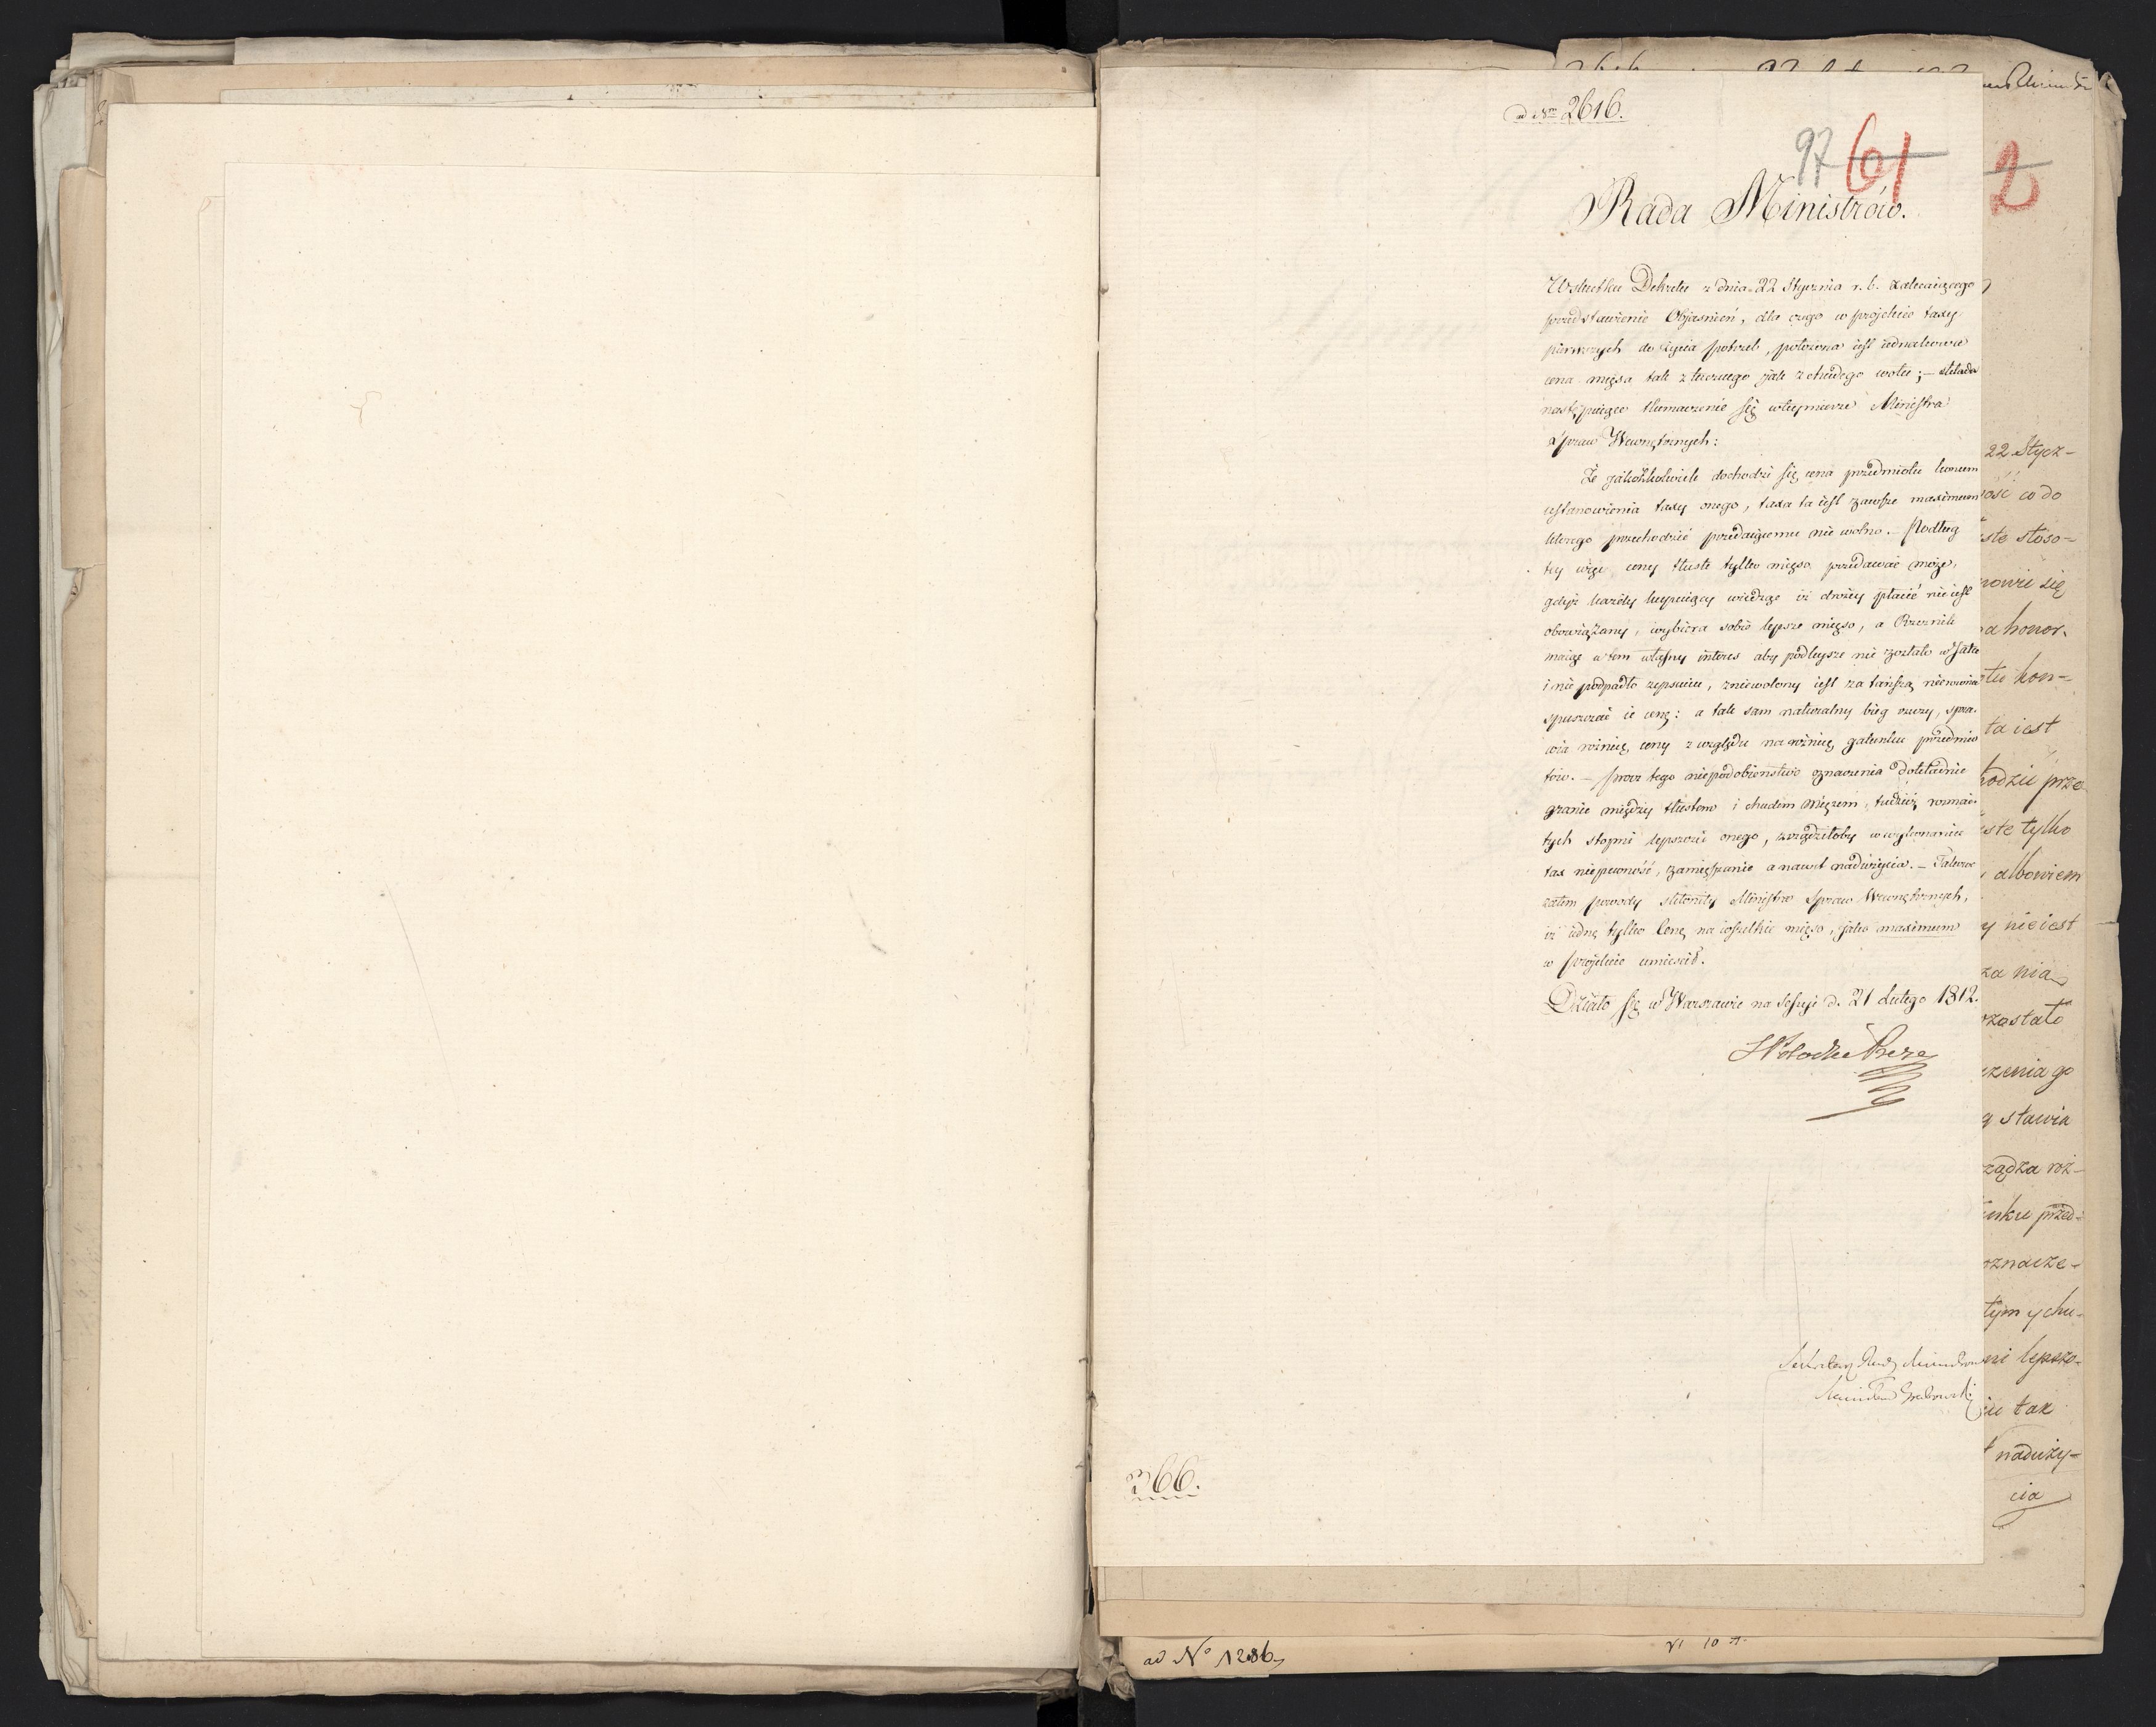 ad Nrm 2616.
97 61
Rada Ministrów.
Wskutku Dekretu z dnia 22 Stycznia r. b. zalecaiącego
przedstawienie Objasnień, dla czego w projekcie taxy
pierwszych do życia potrzeb, położona iest iednakowa
cena mięsa tak z tłustego jak z chudego wołu; – składa
następuiące tłumaczenie się imieniem Ministra
Spraw Wewnętrznych:
Że jakożkolwiek dochodzi się cena przedmiotu koncem
ustanowienia taxy onego, taxa ta iest zawsze maximum
którego przechodzić przedaiącemu nie wolno. – Podług
tey więc ceny tłuste tylko mięso przedawać może,
gdyż każdy kupuiący wiedząc iż drożey płacić nie iest
obowiązany, wybiera sobie lepsze mięso, a Rzeznik
maiąc w tem własny interes aby podleysze nie zostało w Jatce
i nie podpadło zepsuciu, zniewolony iest za tańszą nierównie
spuszczać ie cenę: a tak sam naturalny bieg rzeczy, spra-
wia różnicę ceny z względu na różnicę gatunku przedmio
tów. – prócz tego niepodobieństwo oznaczenia dokładnie
granic między tłustem i chudem mięsem, tudzież rozmai-
tych stopni lepszości onego, zrządziłoby w wykonaniu
tax niepewność, zamięszanie a nawet nadużycia. – Takowe
zatem powody skłoniły Ministra Spraw Wewnętrznych,
iż iednę tylko Cenę na wszelkie mięso, jako maximum
w projekcie umieścił.
Działo się w Warszawie na Sessyi d. 21 Lutego 1812.
S Potocki Preze
Sekretarz Rady Ministrów
Stanisław Grabowski
366.
2
22 Stycz-
ość co do
ste stoso-
nowi się
a honor.
tu kon-
ta iest
hodzić prze
ste tylko
albowiem
y nie iest
za nia
zostało
zenia go
y stawia
ządza róż-
unku przed-
oznacze-
tym y chu-
ni lepszo-
iu tax
t naduży-
cia
ad No 1286